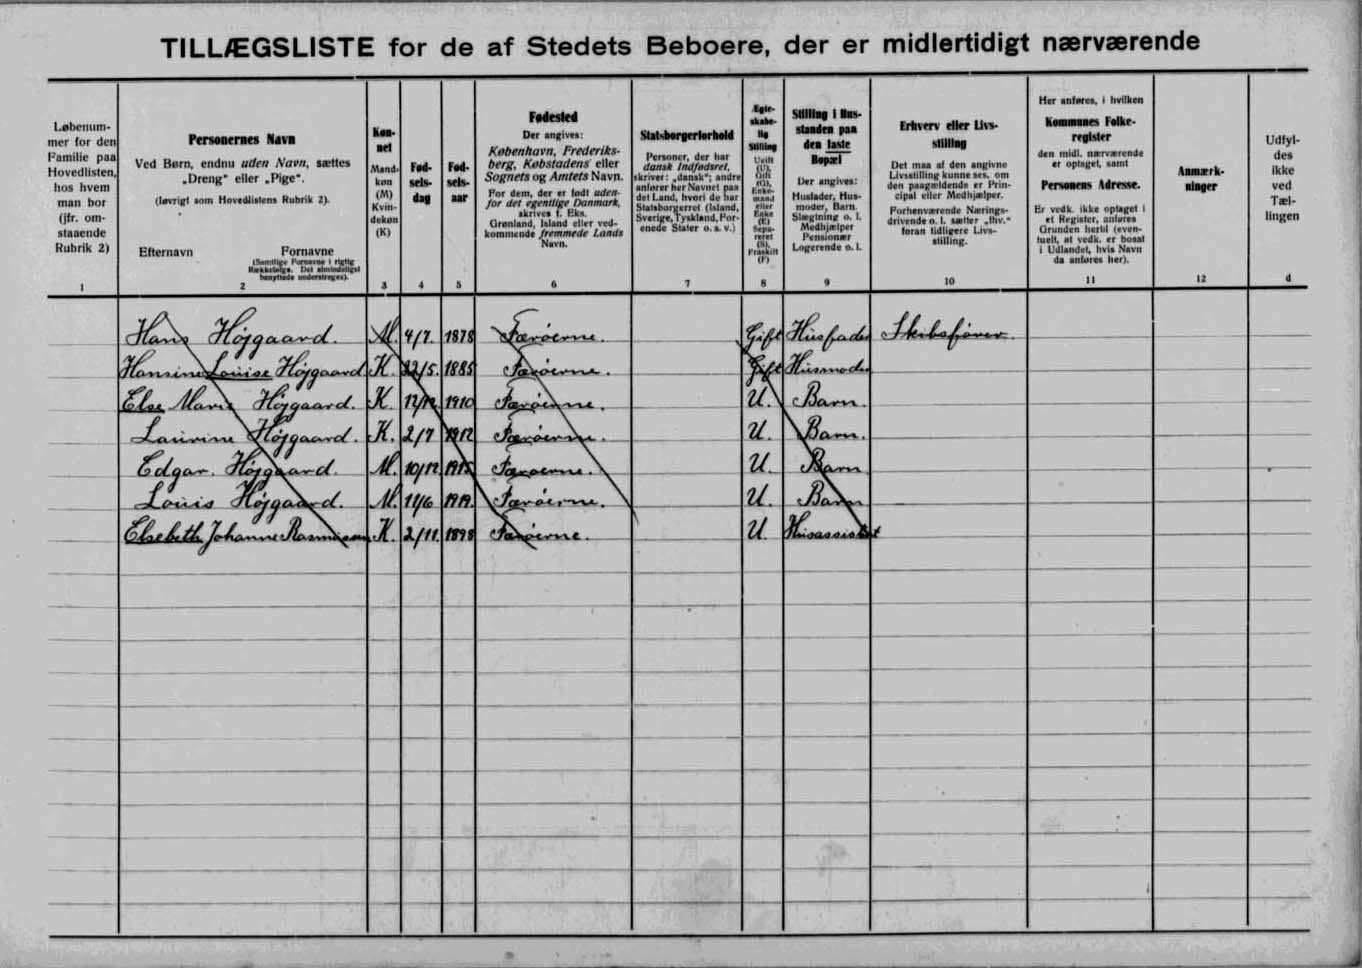 TILLÆGSLISTE for de af Stedets Beboere, der er midlertidigt nærværende
Løbenum-
mer for den
Familie paa
Hovedlisten,
hos hvem
man bor
(jfr. om-
staaende
Rubrik 2)
1
Personernes Navn
Ved Børn, endnu uden Navn, sættes
„Dreng“ eller „Pige“.
(Iøvrigt som Hovedlistens Rubrik 2).
Efternavn
Fornavne
(Samtlige Fornavne i rigtig
Rækkefølge. Det almindeligst
benyttede understreges).
2
Køn-
net
Mand-
køn
(M)
Kvin-
dekøn
(K)
3
Fød-
sels-
dag
4
Fød-
sels-
aar
5
Fødested
Der angives:
København, Frederiks-
berg, Købstadens eller
Sognets og Amtets Navn.
For dem, der er født uden-
for det egentlige Danmark,
skrives f. Eks.
Grønland, Island eller ved-
kommende fremmede Lands
Navn.
6
Statsborgerforhold
Personer, der har
dansk Indfødsret,
skriver: „dansk“; andre
anfører her Navnet paa
det Land, hvori de har
Statsborgerret (Island,
Sverige, Tyskland, For-
enede Stater o. s. v.)
7
Ægte-
skabe-
lig
Stilling
Ugift
(U),
Gift
(G),
Enke-
mand
eller
Enke
(E)
Sepa-
reret
(S),
Fraskilt
(F)
8
Stilling i Hus-
standen paa
den faste
Bopæl
Der angives:
Husfader, Hus-
moder, Barn.
Slægtning o. l.
Medhjælper
Pensionær
Logerende o. l.
9
Erhverv eller Livs-
stilling
Det maa af den angivne
Livsstilling kunne ses, om
den paagældende er Prin-
cipal eller Medhjælper.
Forhenværende Nærings-
drivende o. l. sætter „fhv.“
foran tidligere Livs-
stilling.
10
Her anføres, i hvilken
Kommunes Folke-
register
den midl. nærværende
er optaget, samt
Personens Adresse.
Er vedk. ikke optaget i
et Register, anføres
Grunden hertil (even-
tuelt, at vedk. er bosat
i Udlandet, hvis Navn
da anføres her).
11
Anmærk-
ninger
12
Udfyl-
des
ikke
ved
Tæl-
lingen
d
Hans Højgaard. M. 4/7. 1878 Færøerne. Gift Husfader Skibsfører.
Hansine Louise Højgaard K. 22/5. 1885 Færøerne. Gift Husmoder
Else Marie Højgaard. K. 12/12. 1910 Færøerne. U. Barn.
Laurine Højgaard. K. 2/7 1912 Færøerne. U. Barn.
Edgar. Højgaard. M. 10/12. 1915 Færøerne. U. Barn
Louis Højgaard. M. 11/6 1919. Færøerne. U. Barn
Elsebeth Johanne Rasmussen K. 2/11. 1898 Færøerne. U. Husassistent